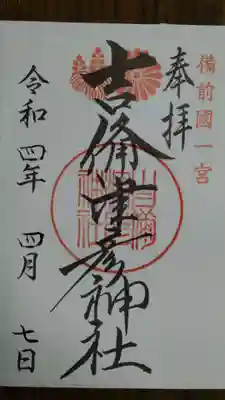 備前國一宮
奉拝
吉備津彦神社
令和四年 四月 七日